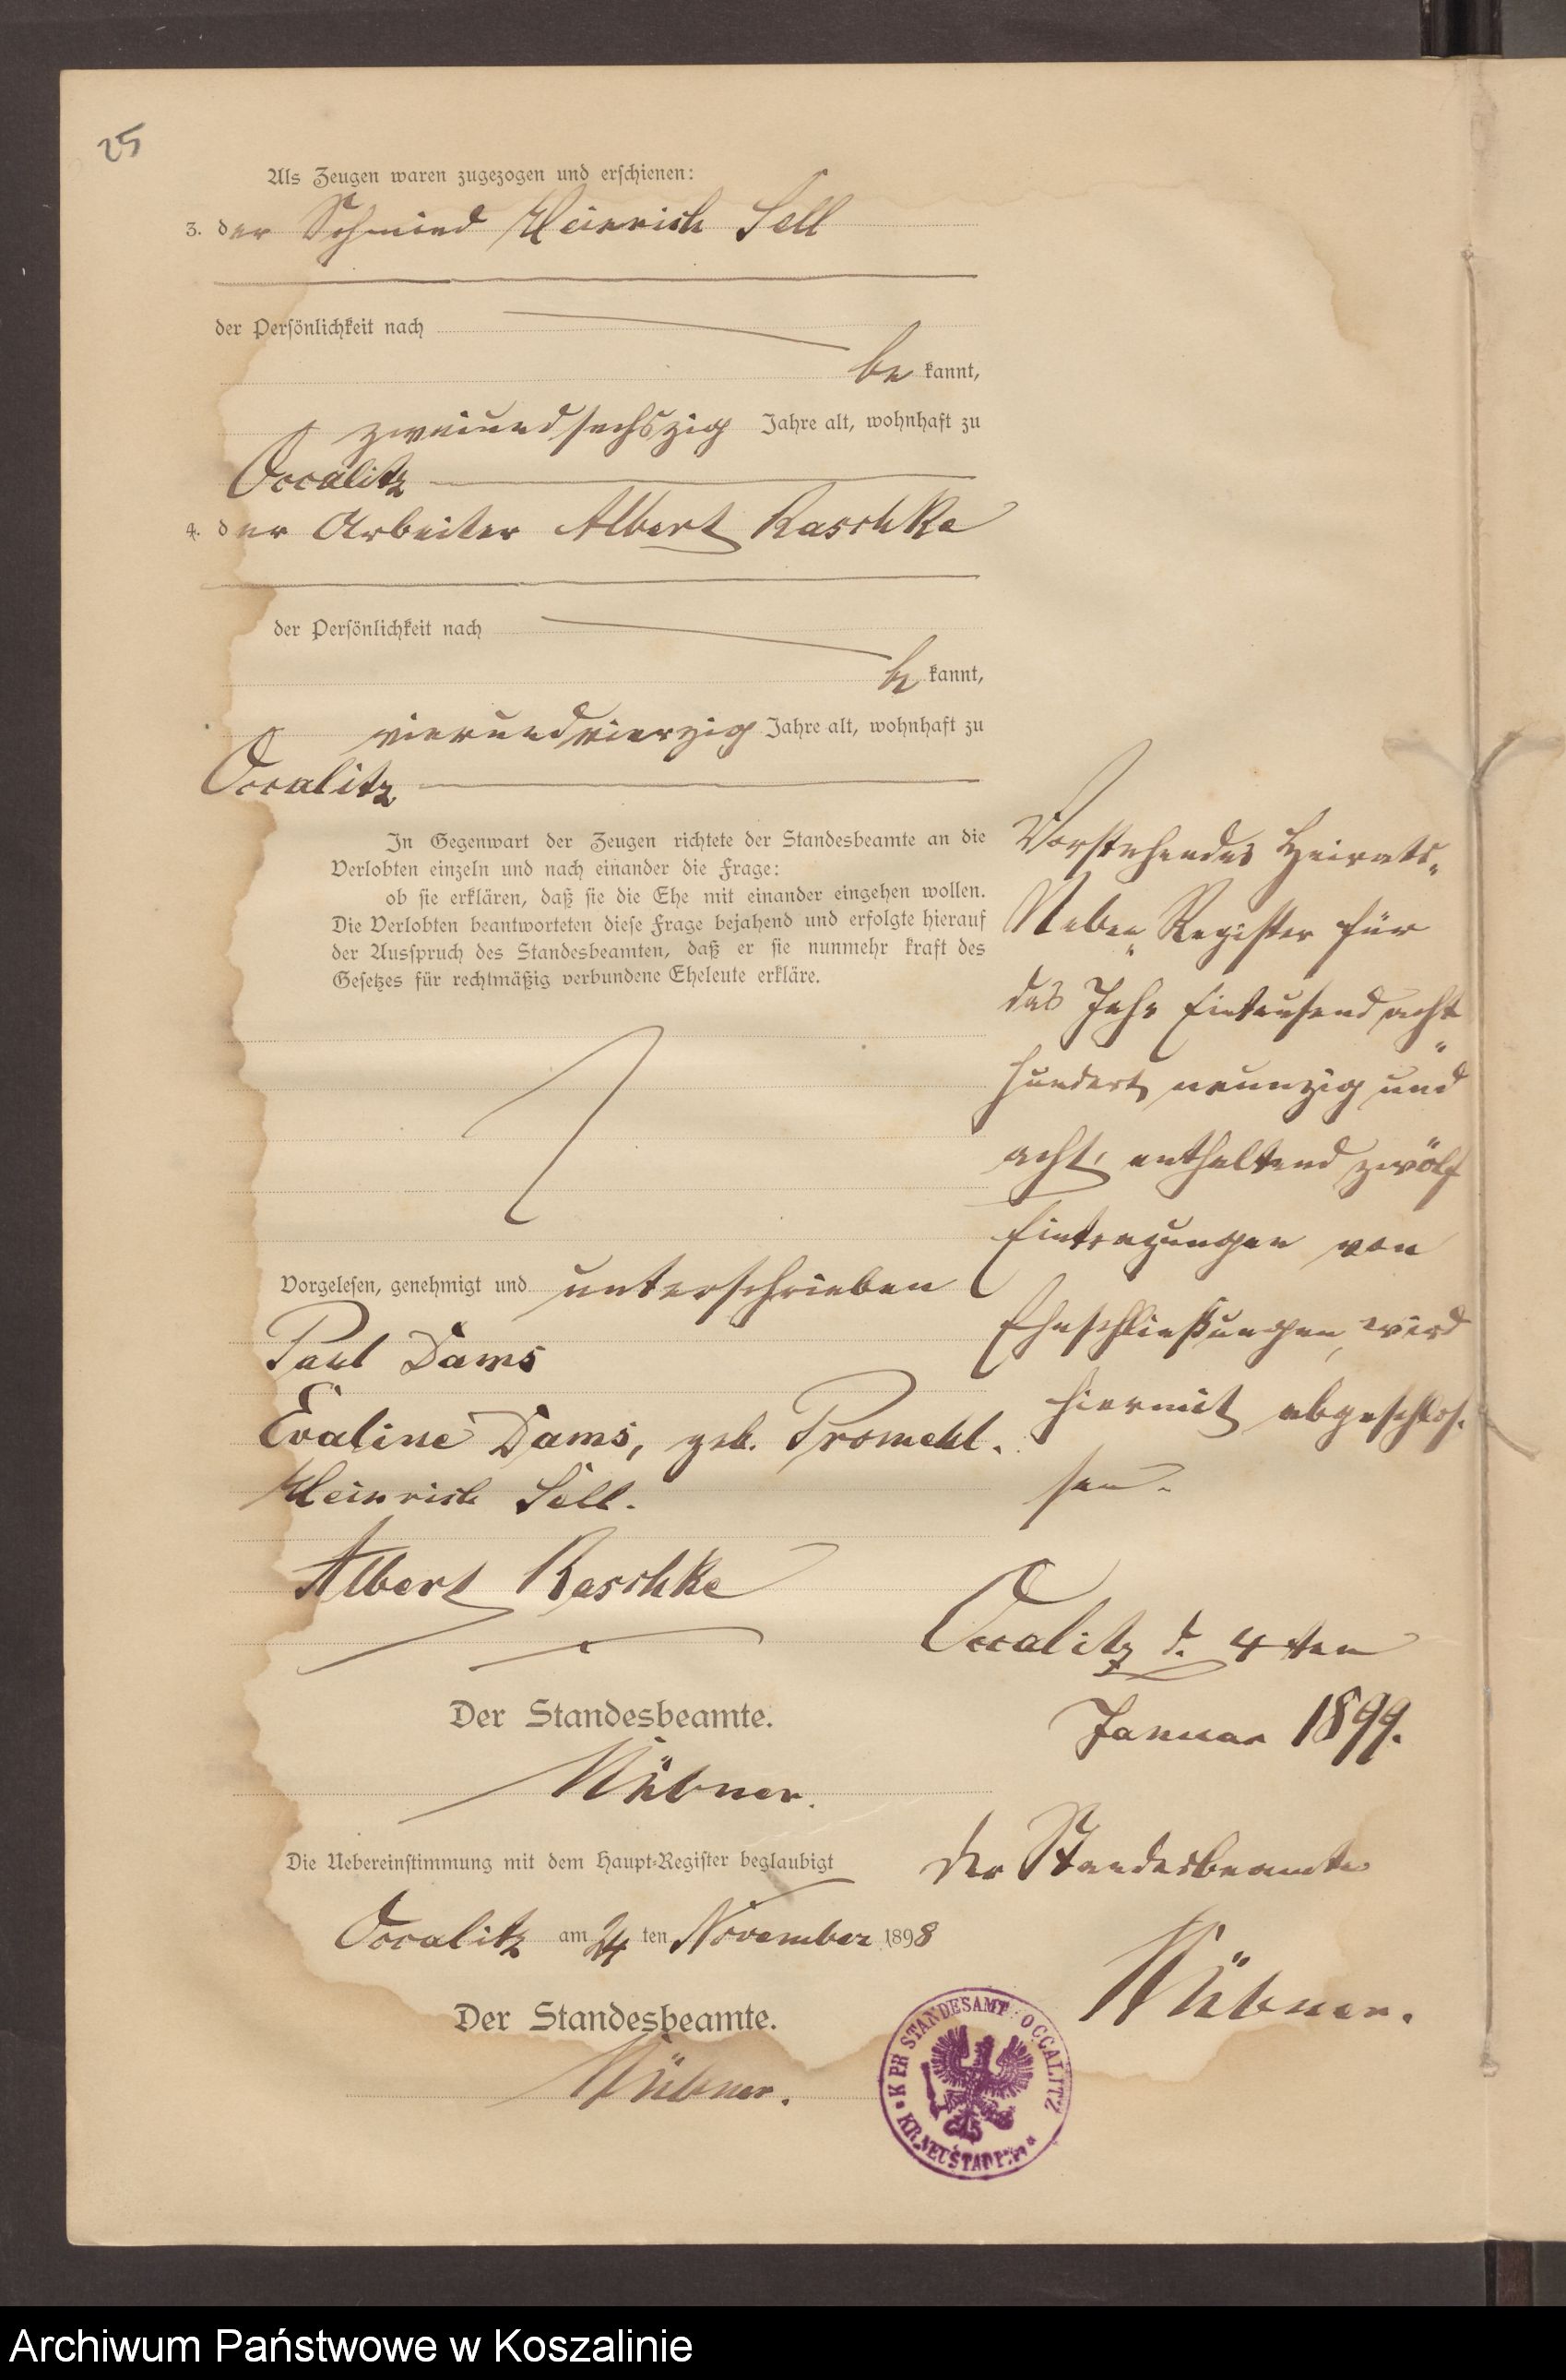 25
Als Zeugen waren zugezogen und erschienen:
3. der Schmied Heinrich Sell
der Persönlichkeit nach
be kannt,
zweiundsechszig Jahre alt, wohnhaft zu
Occalitz
4. der Arbeiter Albert Raschke
der Persönlichkeit nach
be kannt,
vierundvierzig Jahre alt, wohnhaft zu
Occalitz
In Gegenwart der Zeugen richtete der Standesbeamte an die
Verlobten einzeln und nach einander die Frage:
ob sie erklären, daß sie die Ehe mit einander eingehen wollen.
Die Verlobten beantworteten diese Frage bejahend und erfolgte hierauf
der Ausspruch des Standesbeamten, daß er sie nunmehr kraft des
Gesetzes für rechtmäßig verbundene Eheleute erkläre.
Vorgelesen, genehmigt und unterschrieben
Paul Dams
Evaline Dams, geb. Promehl.
Heinrich Sell.
Albert Raschke
Der Standesbeamte.
Nübner.
Die Uebereinstimmung mit dem Haupt-Register beglaubigt
Occalitz am 24 ten November 1898
Der Standesbeamte.
Nübner.
Vorstehendes Heirats-
Neben-Register für
das Jahr Eintausend acht-
hundert neunzig und
acht, enthaltend zwölf
Eintragungen von
Eheschließungen, wird
hiermit abgeschlos-
sen.
Occalitz d. 4ten
Januar 1899.
Der Standesbeamte
Nübner.
K PR STANDESAMT OCCALITZ
Archiwum Państwowe w Koszalinie